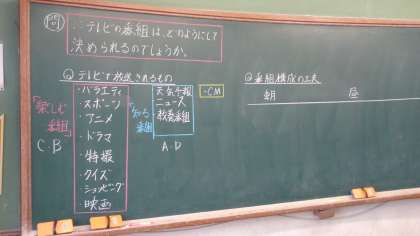 問
∴テレビの番組は、どのようにして
決められるのでしょうか。
Q テレビで放送されるもの
・バラエティ
・スポーツ
・アニメ
・ドラマ
・特撮
・クイズ
・ショッピング
・映画
「楽しむ
番組」
C.B
天気予報
ニュース
教養番組
「知る
番組」
A.D
・CM
Q 番組構成の工夫
朝
昼